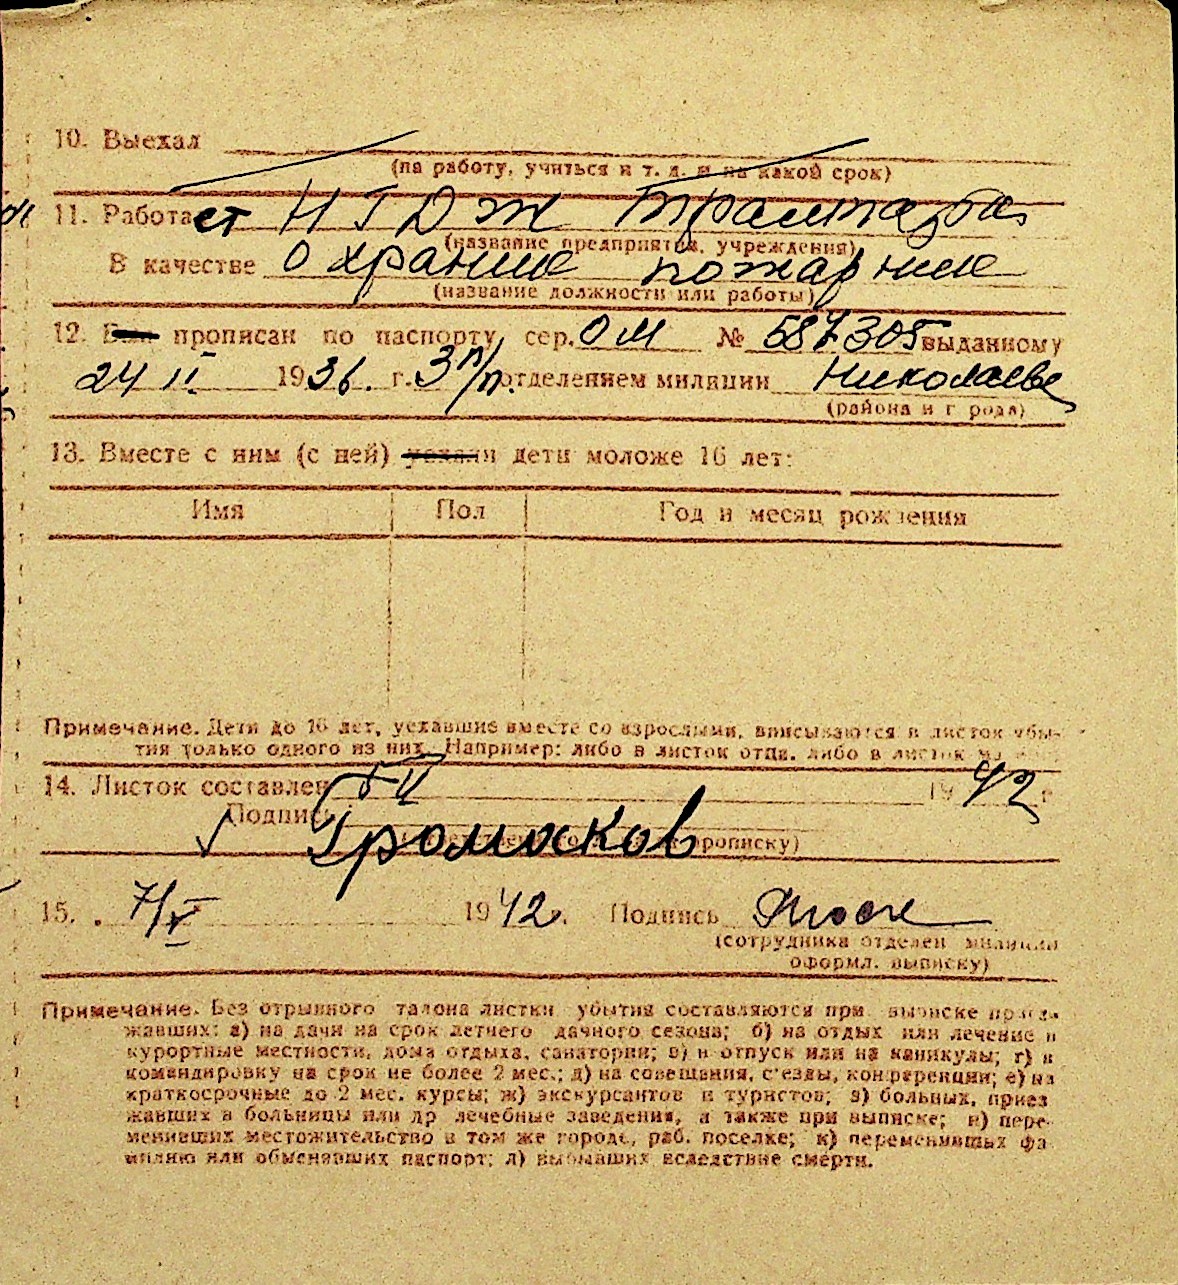 10. Выехал
(на работу, учиться и т. д. и на какой срок)
11. Работает Н Г Д Ж
(название предприятия, учреждения)
В качестве Охрание пожарные
(название должности или работы)
12. Был прописан по паспорту, сер. ОМ № 587305 выданному
24 II 1936. г. 3 п/п. отделением милиции Николаеве
(района и города)
13. Вместе с ним (с ней) уехали дети моложе 16 лет:
Имя Пол Год и месяц рождения
Примечание. Дети до 16 лет, уехавшие вместе со взрослыми, вписываются в листок убы-
тия только одного из них. Например: либо в листок отца, либо в листок
14. Листок составлен 1942 г
Подпись Громоков
прописку)
15. 7/V 1942. Подпись
(сотрудника отделен милиции
оформл. выписку)
Примечание. Без отрывного талона листки убытия составляются при выписке проез-
жавших: а) на дачи на срок летнего дачного сезона; б) на отдых или лечение в
курортные местности, дома отдыха, санатории; в) в отпуск или на каникулы; г) в
командировку на срок не более 2 мес.; д) на совещания, с'езды, конференции; е) на
краткосрочные до 2 мес. курсы; ж) экскурсантов и туристов; з) больных, приез
жавших в больницы или др лечебные заведения, а также при выписке; и) пере-
менивших местожительство в том же городе, раб. поселке; к) переменивших фа
милию или обменявших паспорт; л) выбывших вследствие смерти.